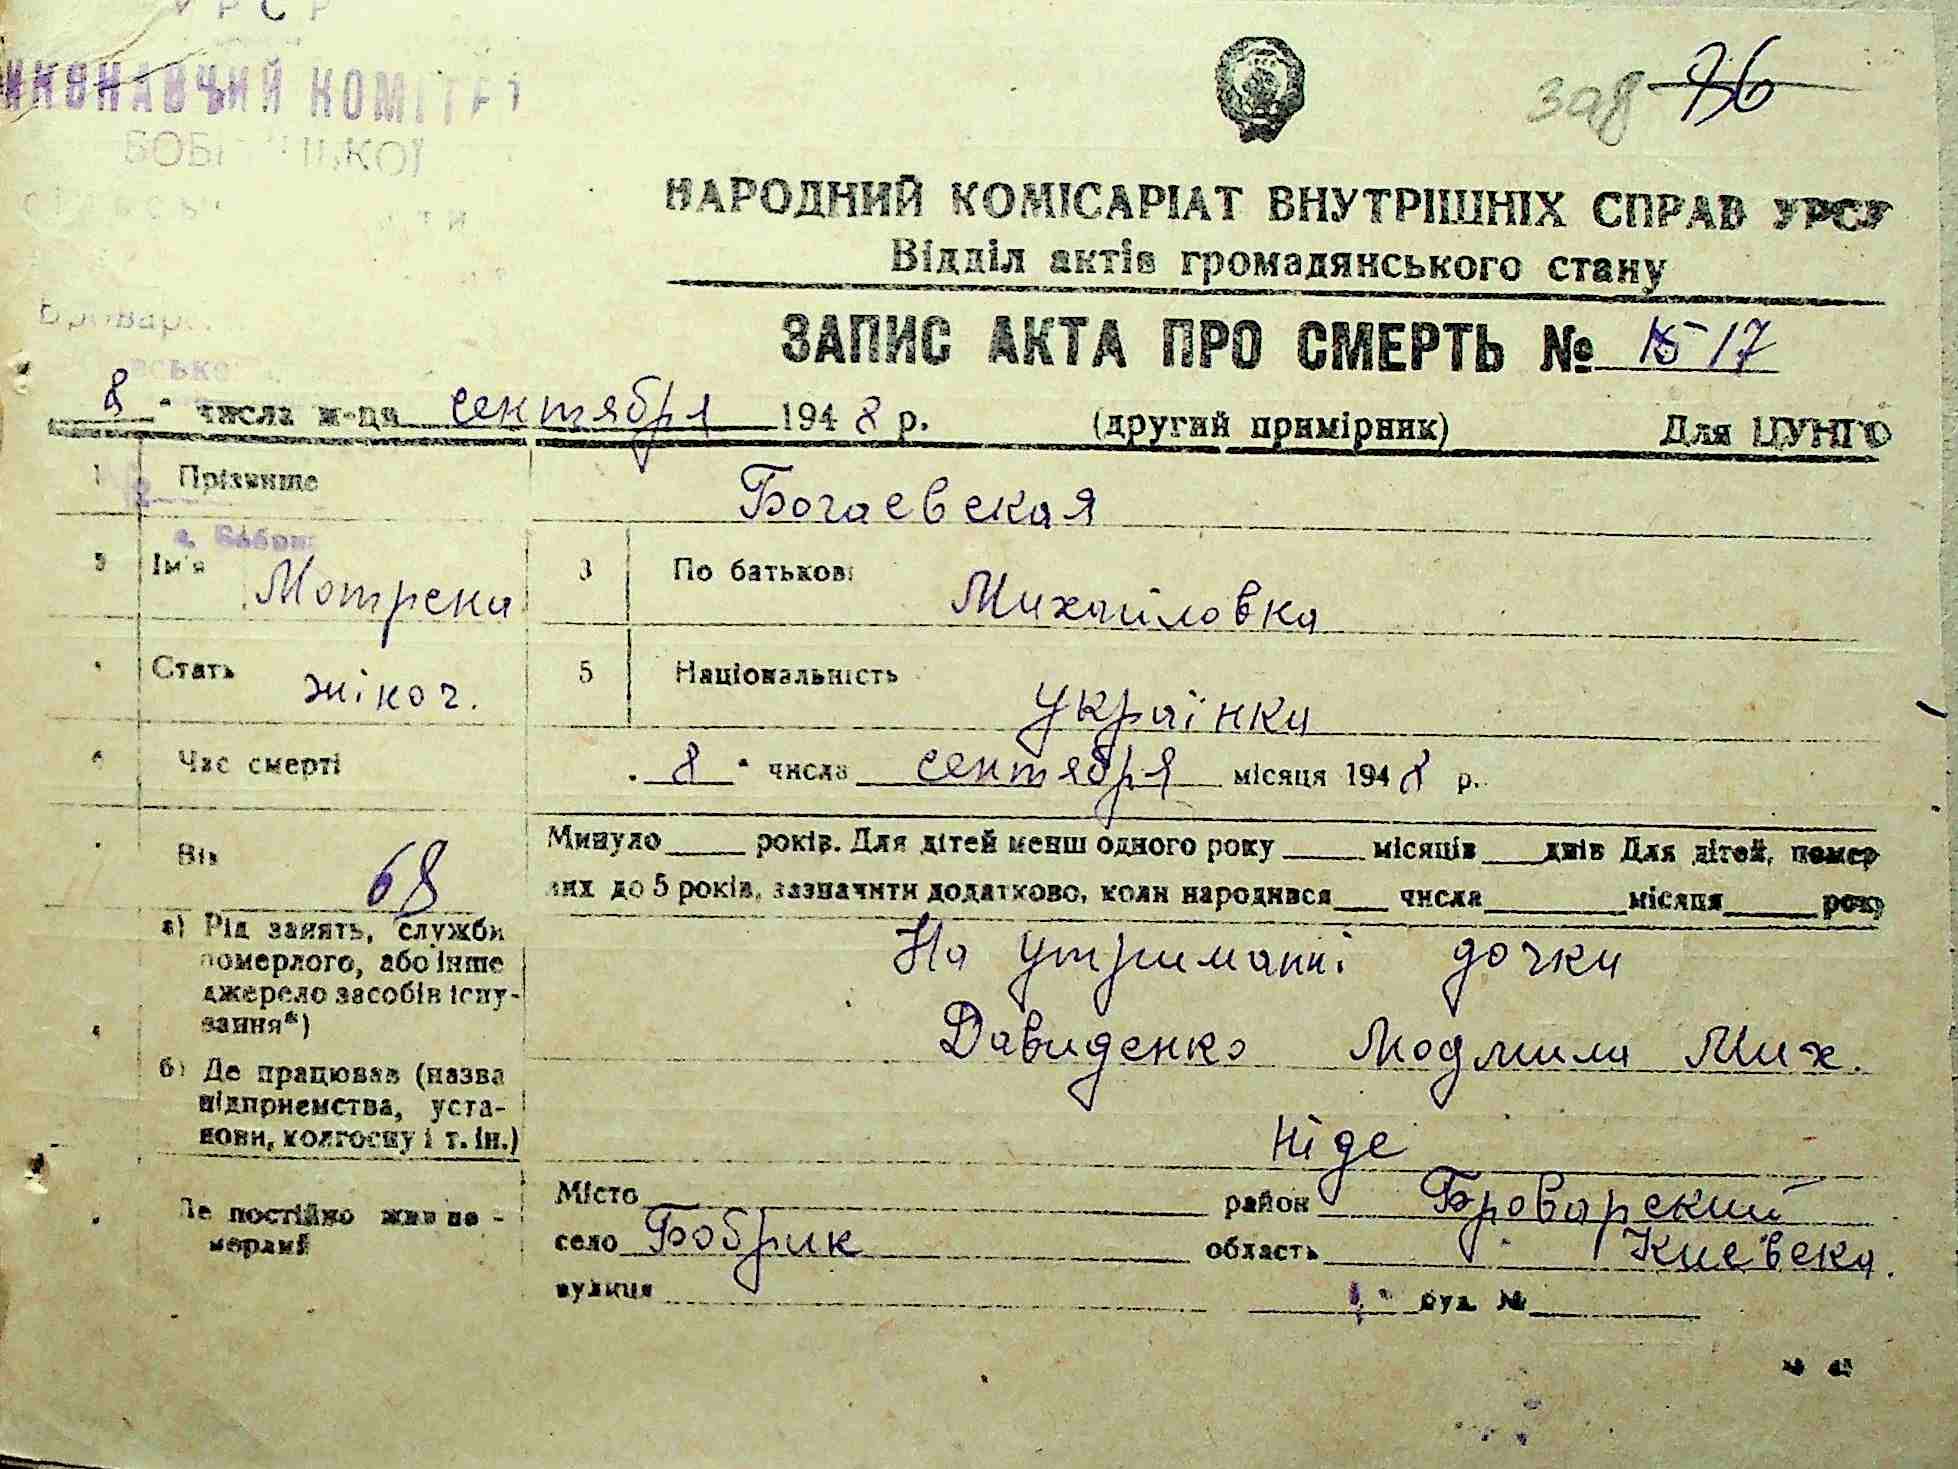 УРСР
ВИКОНАВЧИЙ КОМІТЕТ
308 76
НАРОДНИЙ КОМІСАРІАТ ВНУТРІШНІХ СПРАВ УРСР
Відділ актів громадянського стану
ЗАПИС АКТА ПРО СМЕРТЬ № 15 17
8 " числа м-ця сентября 1948 р. (другий примірник) Для ЦУНГО
1 Прізвище Богаевская
Ім'я Мотрена 3 По батькові Михайловна
Стать жіноч. 5 Національність українка
6 Час смерті 8 " числа сентября місяця 1948 р.
Вік 68 Минуло ____ років. Для дітей менш одного року ____ місяців ____ днів Для дітей, помер
лих до 5 років, зазначити додатково, коли народився ____ числа ____ місяця ____ року
а) Рід занять, служби померлого, або інше джерело засобів існування*) На утриманні дочки
Давиденко Людмила Мих.
б) Де працював (назва підприємства, установи, колгоспу і т. ін.) Ніде
Де постійно жив померлий Місто ____ район Броварский
село Бобрик область Киевска.
вулиця ____ буд. № ____